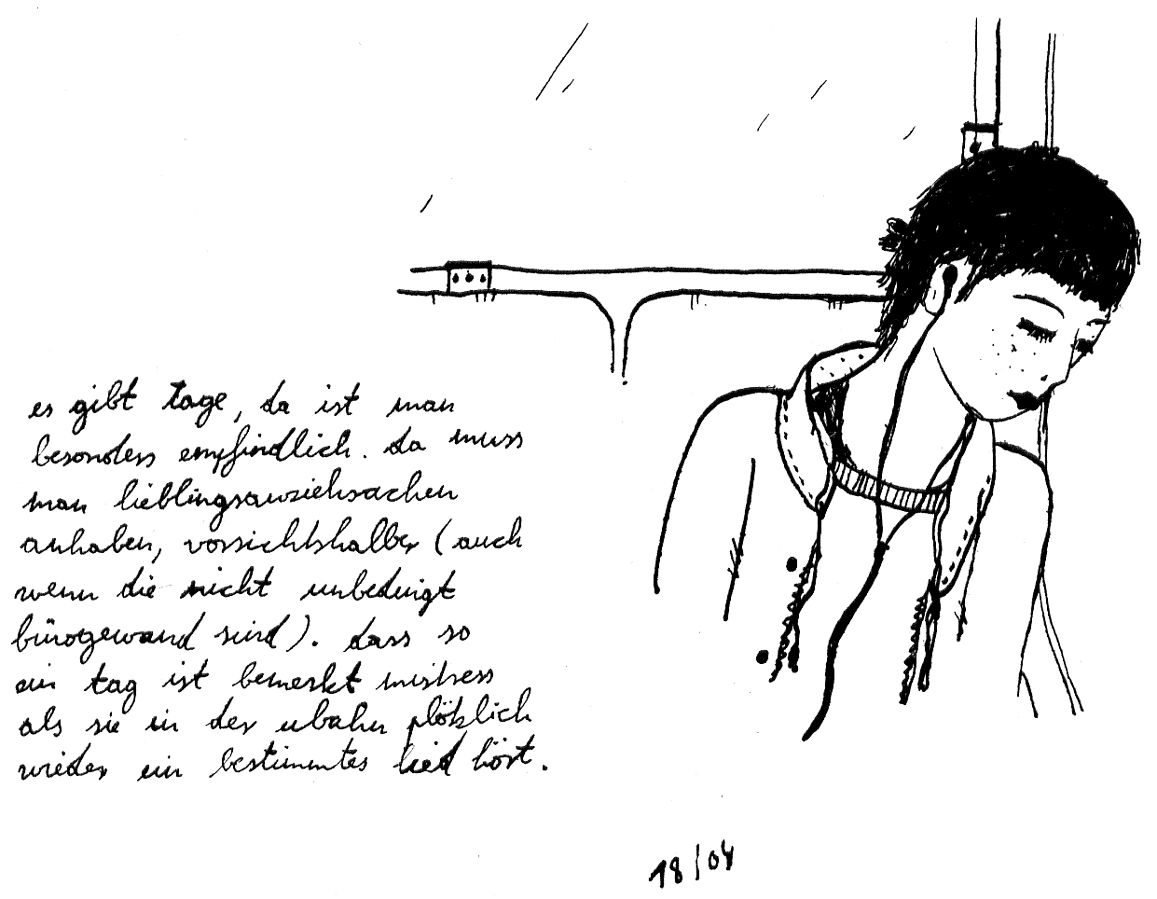 es gibt tage, da ist man
besonders empfindlich. da muss
man lieblingsanziehsachen
anhaben, vorsichtshalber (auch
wenn die nicht unbedingt
bürogewand sind). dass so
ein tag ist bemerkt mistress
als sie in der ubahn plötzlich
wieder ein bestimmtes lied hört.
18/04